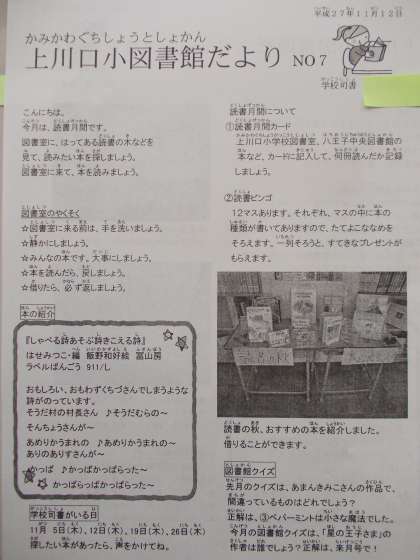 平成27年11月12日
かみかわぐちしょうとしょかん
上川口小図書館だより NO7
学校司書
こんにちは。
今月は、読書月間です。
図書室に、はってある読書の木などを
見て、読みたい本を探しましょう。
図書室に来て、本を読みましょう。
図書室のやくそく
☆図書室に来る前は、手を洗いましょう。
☆静かにしましょう。
☆みんなの本です。大事にしましょう。
☆本を読んだら、戻しましょう。
☆借りたら、必ず返しましょう。
本の紹介
『しゃべる詩あそぶ詩きこえる詩』
はせみつこ・編 飯野和好絵 冨山房
ラベルばんごう 911/L
おもしろい、おもわずくちづさんでしまうような
詩がのっています。
そうだ村の村長さん ♪そうだむらの~
そんちょうさんが~
あめりかうまれの ♪あめりかうまれの~
ありのありすさんが~
かっぱ ♪かっぱかっぱらった~
かっぱらっぱかっぱらった~
学校司書がいる日
11月 5日(木)、12日(木)、19日(木)、26日(木)
探したい本があったら、声をかけてね。
読書月間について
①読書月間カード
上川口小学校図書室、八王子中央図書館の
本など、カードに記入して、何冊読んだか記録
しましょう。
②読書ビンゴ
12マスあります。それぞれ、マスの中に本の
種類が書いてありますので、たてよこななめを
そろえます。一列そろうと、すてきなプレゼントが
もらえます。
読書の秋、おすすめの本を紹介しました。
借りることができます。
図書館クイズ
先月のクイズは、あまんきみこさんの作品で、
間違っているものはどれでしょう?
正解は、③ペパーミントは小さな魔法でした。
今月の図書館クイズは、「星の王子さま」の
作者は誰でしょう?正解は、来月号で!